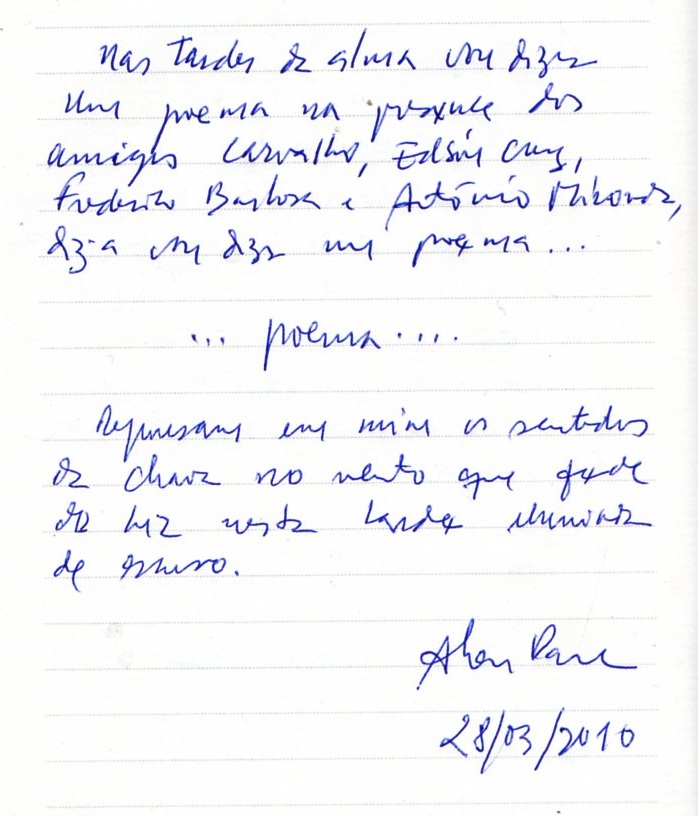 nas tardes da alma vou dizer
um poema na presença dos
amigos Carvalho, Edson Cruz,
Frederico Barbosa e Antônio Miranda,
diga vou dizer um poema...
... poema....
Represam em mim os sentidos
da chave no vento que
da luz nesta tarde iluminada
de escuro.
28/03/2010